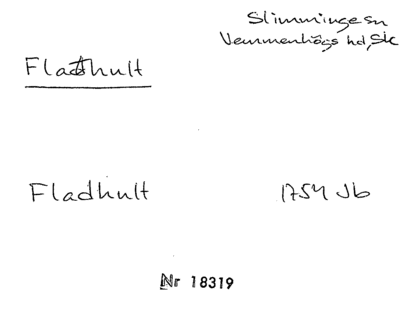 Slimminge sn
Vemmenhögs hd, Sk
Fladhult
Fladhult 1754 Jb
Nr 18319